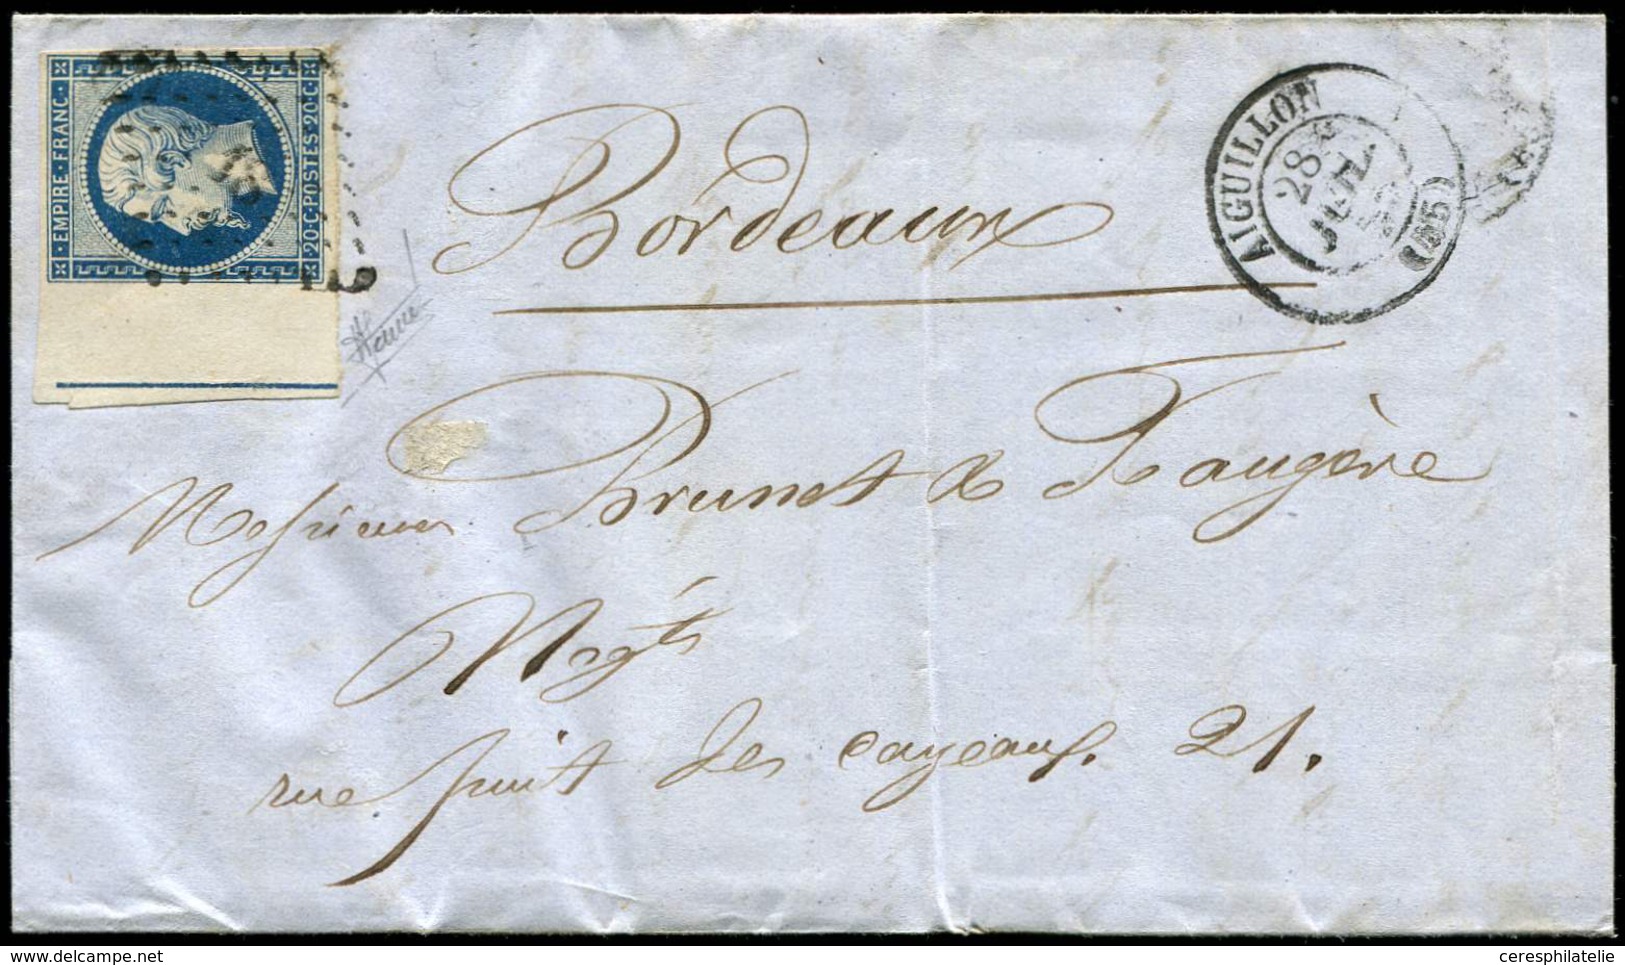 EMPIRE · FRANC ·
20·C·POSTES·20·C·
AIGUILLON
28
JUIL.
(45)
Bordeaux
Messieurs Brunet & Faugère
Negts
rue puits des cazeaux. 21.
www.delcampe.net
ceresphilatelie